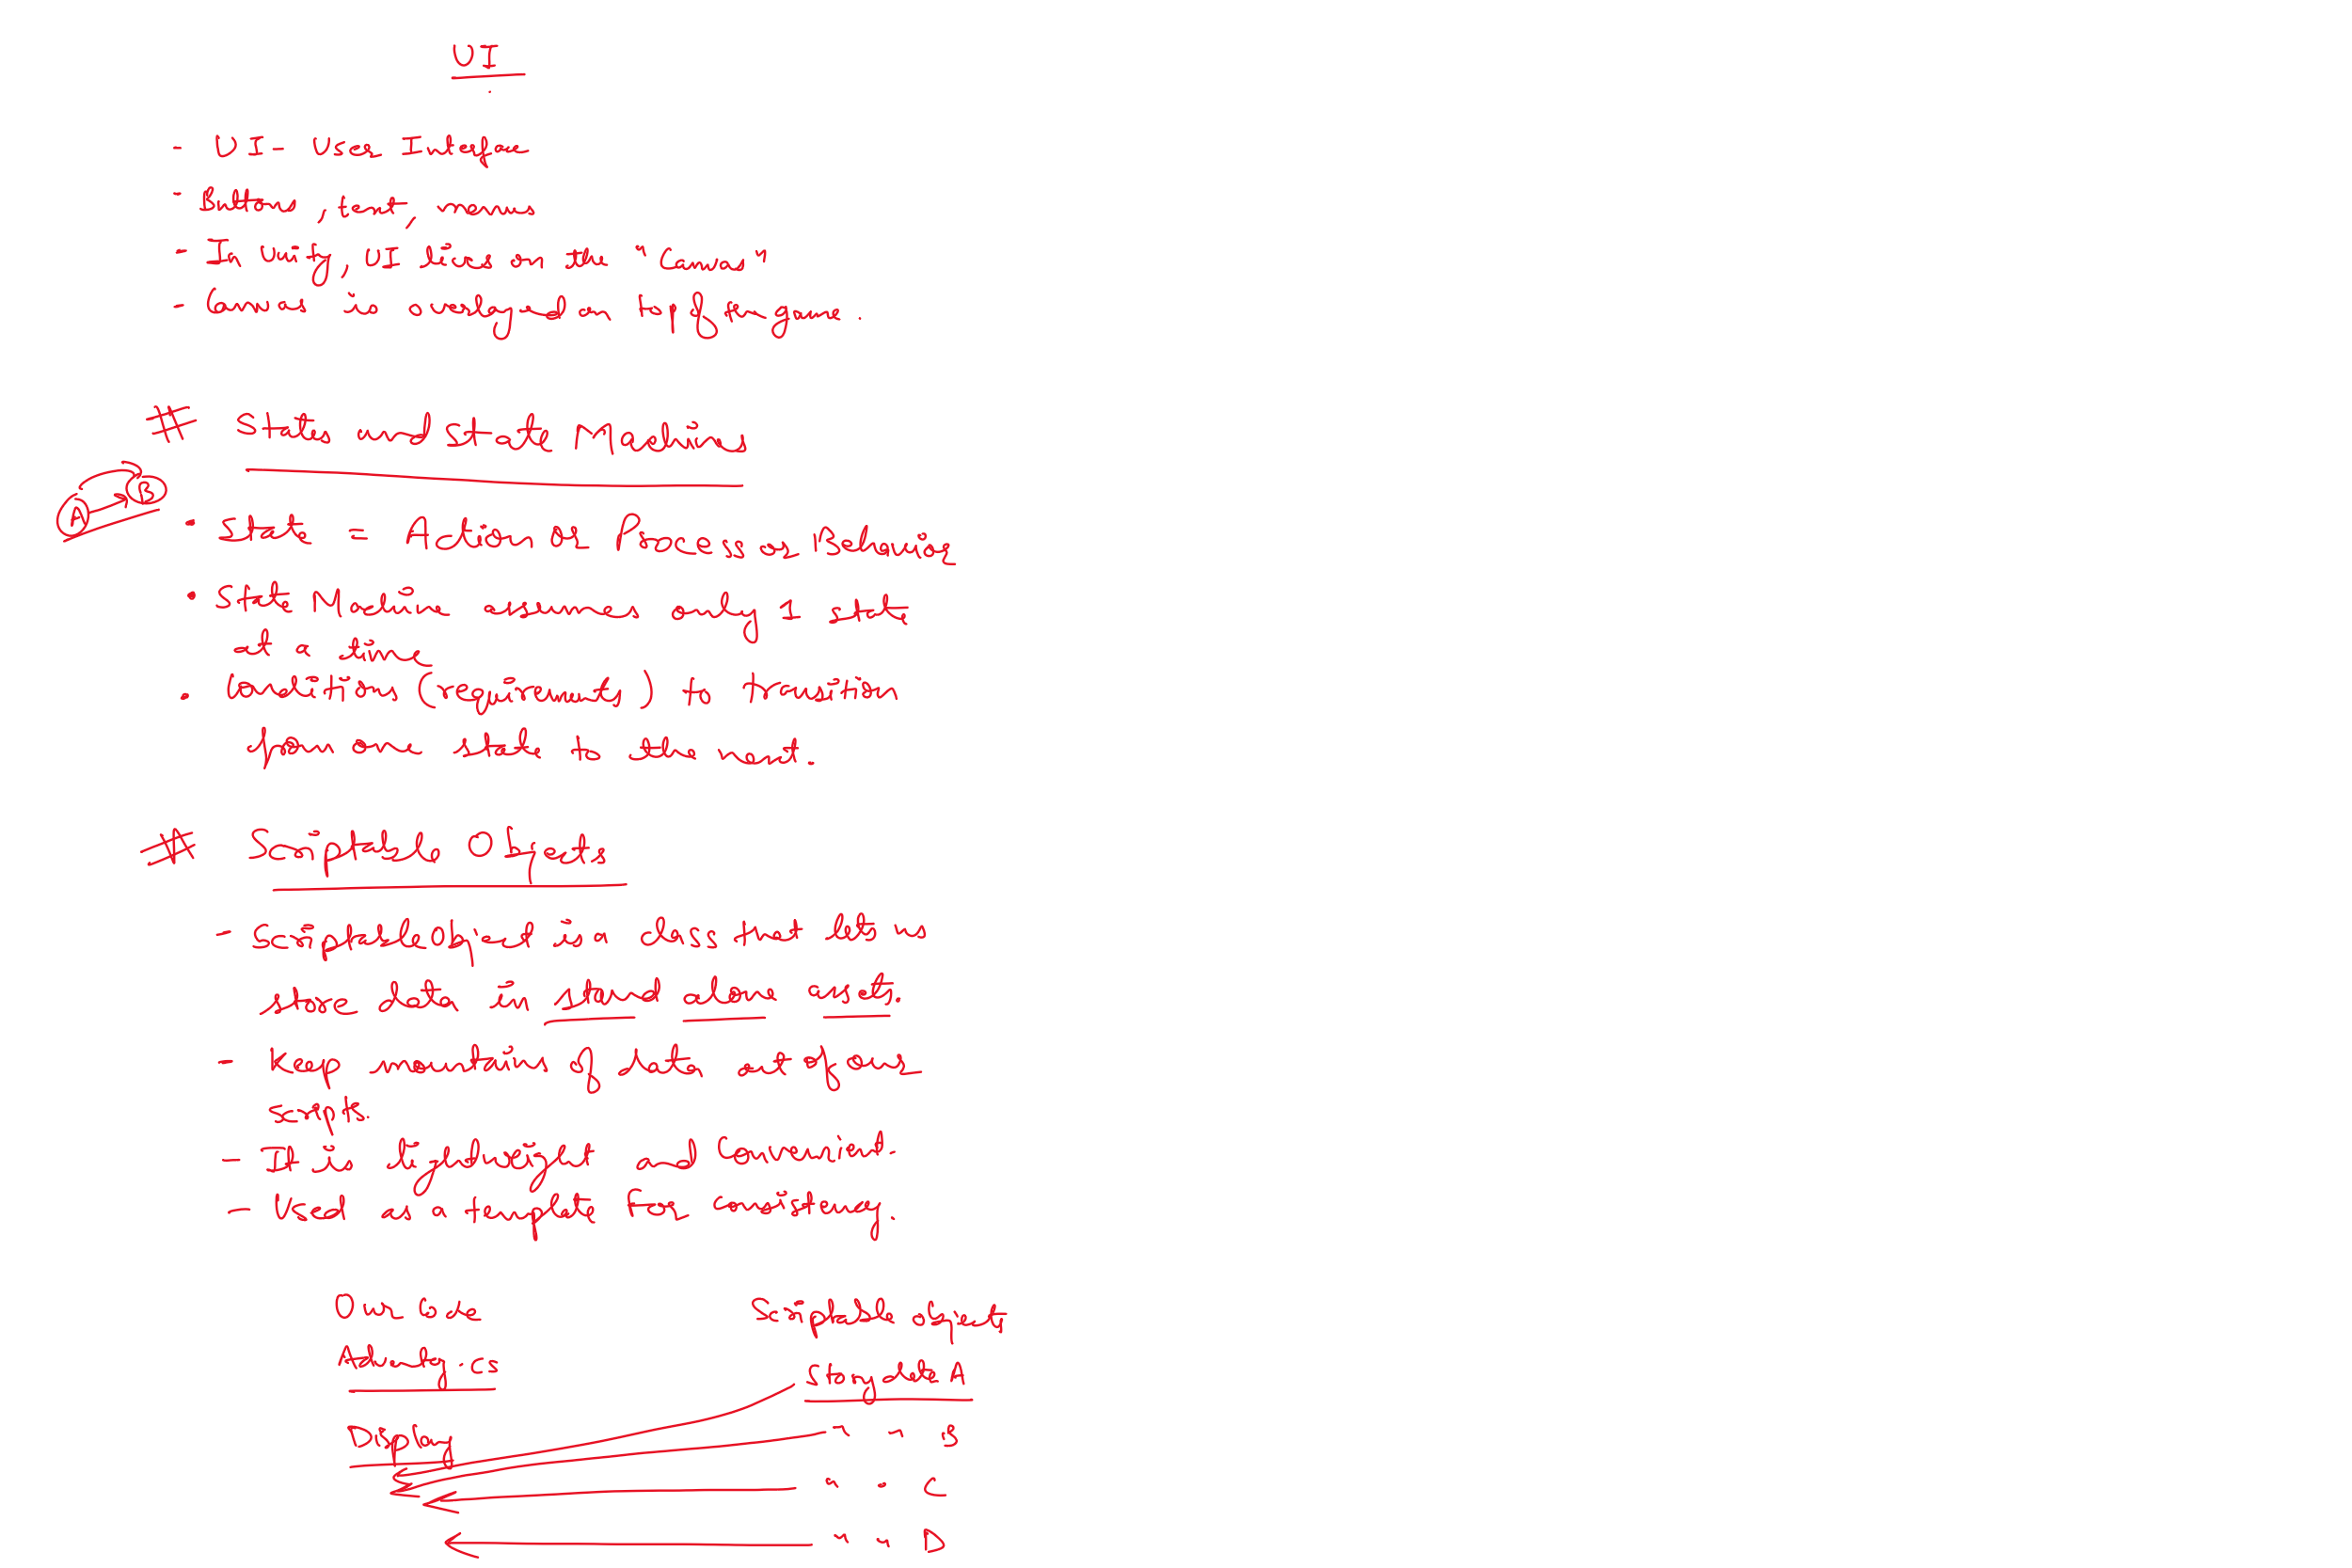 UI
- UI - User Interface
- Buttons, text, menus
- In Unity, UI lives on the "Canvas"
- Canvas is overlayed on top of the game.
# States and State Machines
A B
• State = Action or Process or Behavior
• State Machine assumes only 1 state
at a time
• Conditions (requirements) to transition
from one state to the next.
# Scriptable Objects
- Scriptable Object is a class that lets us
store data in stand alone assets.
- Keep mountains of data out of our
scripts.
- It is lightweight and Convenient.
- Used as a template for consistency.
Our Code Scriptable objects
.cs Story state A
Display " " B
" " C
" " D